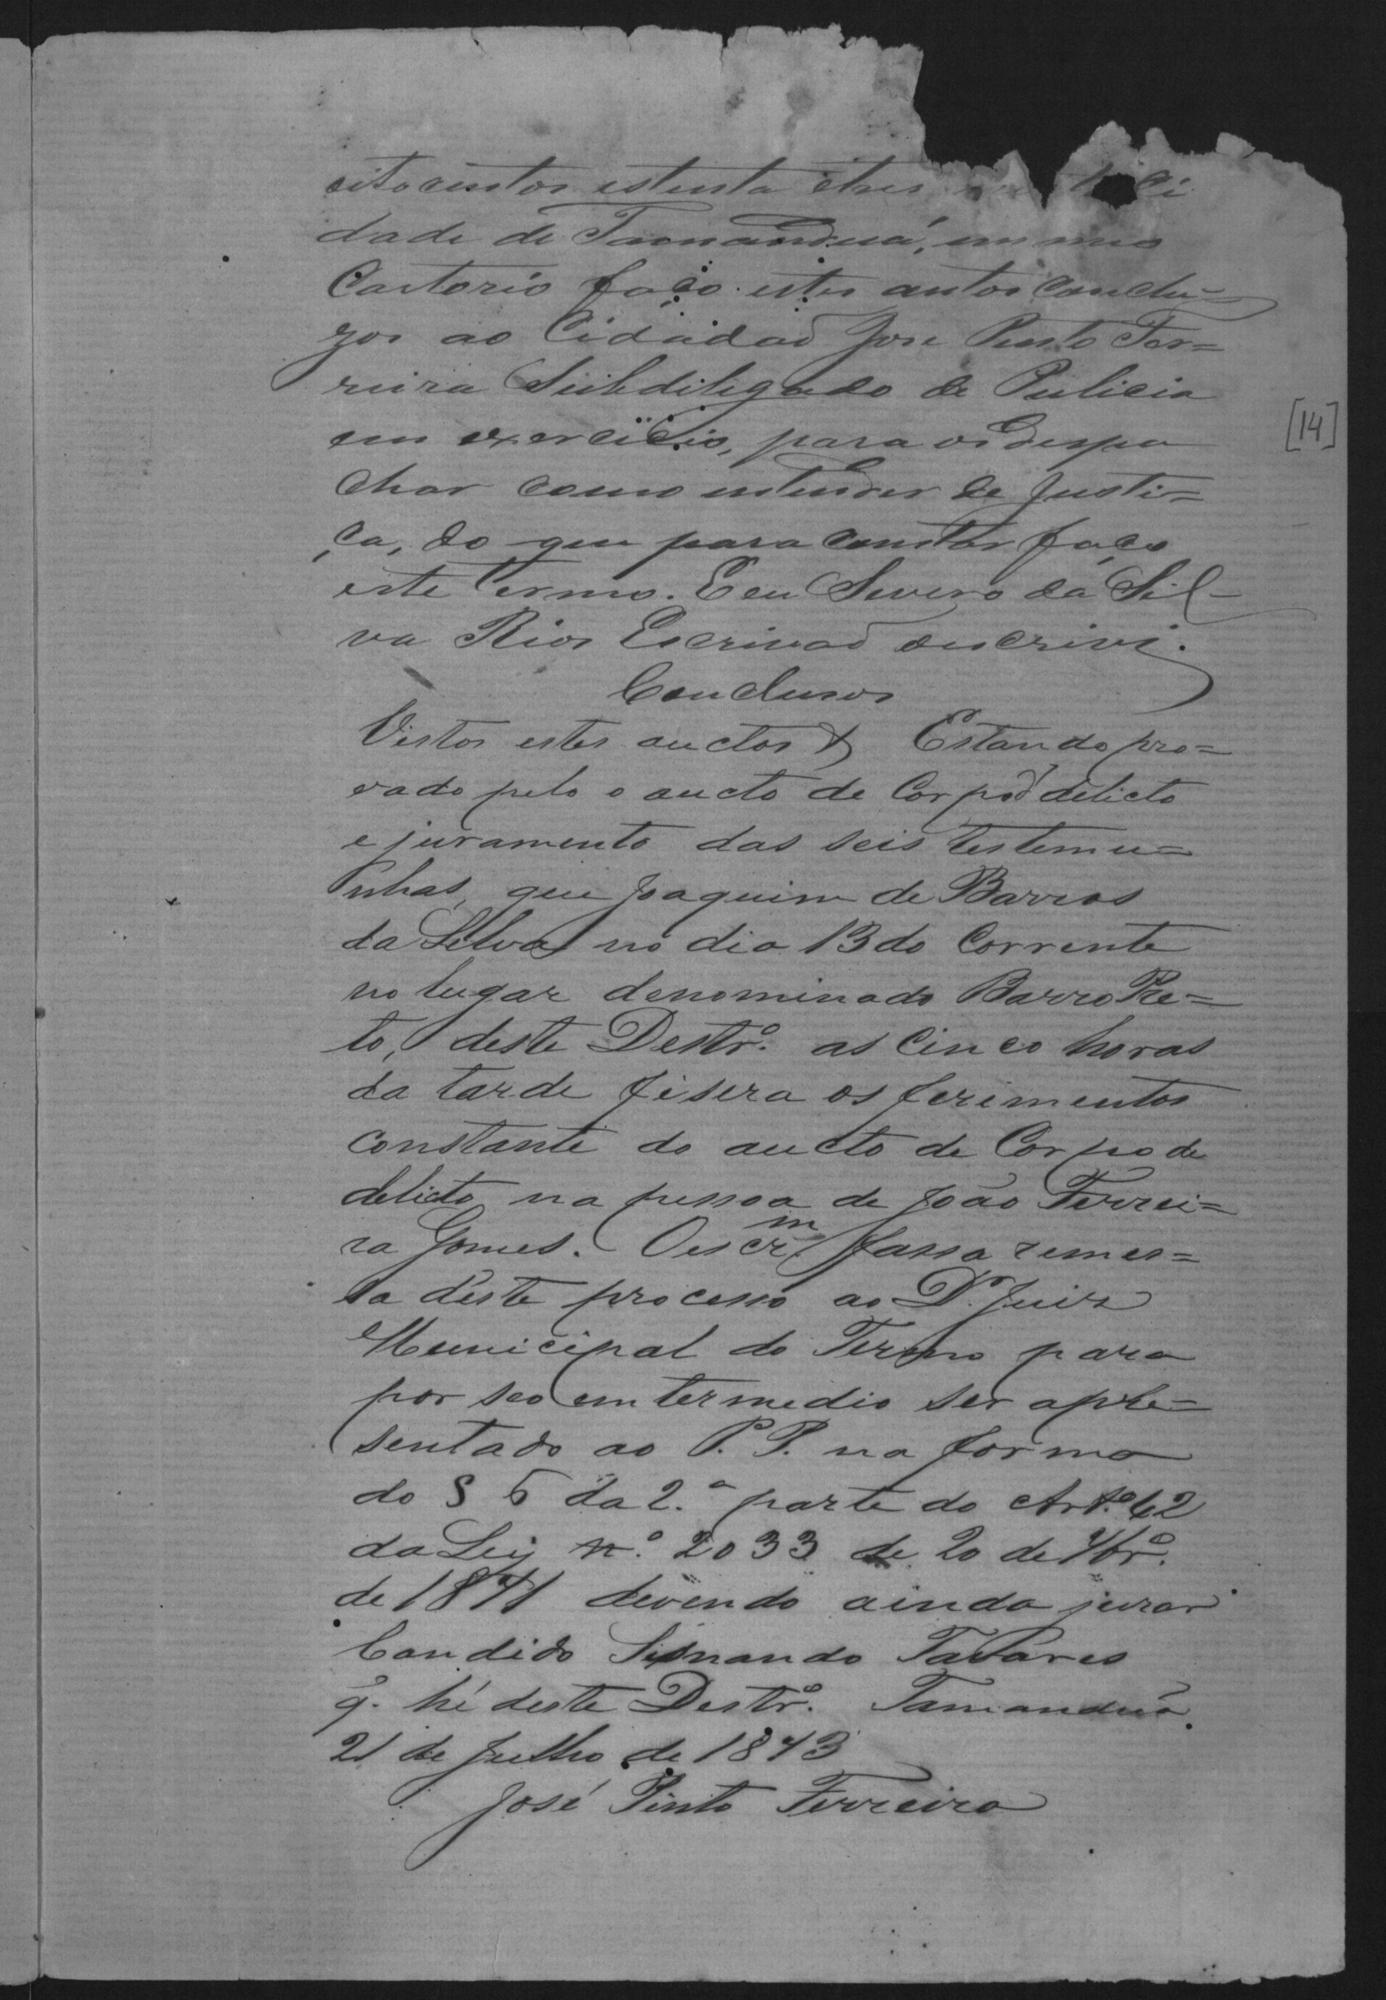 oitocentos esetenta etres Ci
dade de Tamanduá, em meo
Cartorio faço estes autos conclu-
zos ao Cidadaõ Jose Pinto Fer=
reira Subdelegado de Pulicia
em exercicio, para os despa
char como entender de Justi=
ça, do que para constar faço
este termo. Eeu Severo da Sil-
va Rios Escrivaõ oescrivi.
Conclusos
Vistos estes auctos & Estando pro=
vado pelo o aucto de Corpo d delicto
e juramento das seis testemu=
nhas, que Joaquim de Barros
da Silva no dia 13 do Corrente
no lugar denominado Barro Pre=
to, deste Destr.º as Cinco horas
da tarde fisera os ferimentos
constante do aucto de Corpo de
delicto na pessoa de João Ferrei=
ra Gomes. Oescr.m fassa remes=
sa deste processo ao Dr. Juis
Municipal do Termo para
por seo emtermedio ser apre=
sentado ao P. P. na forma
do § 5 da 2.ª parte do Art.º 42
da Ley n.º 2033 de 20 de 7br.º
de 1871 devendo ainda jurar
Candido Tavares
q. hé deste Destr.º Tamanduá
21 de Julho de 1873
José Pinto Ferreira
[14]